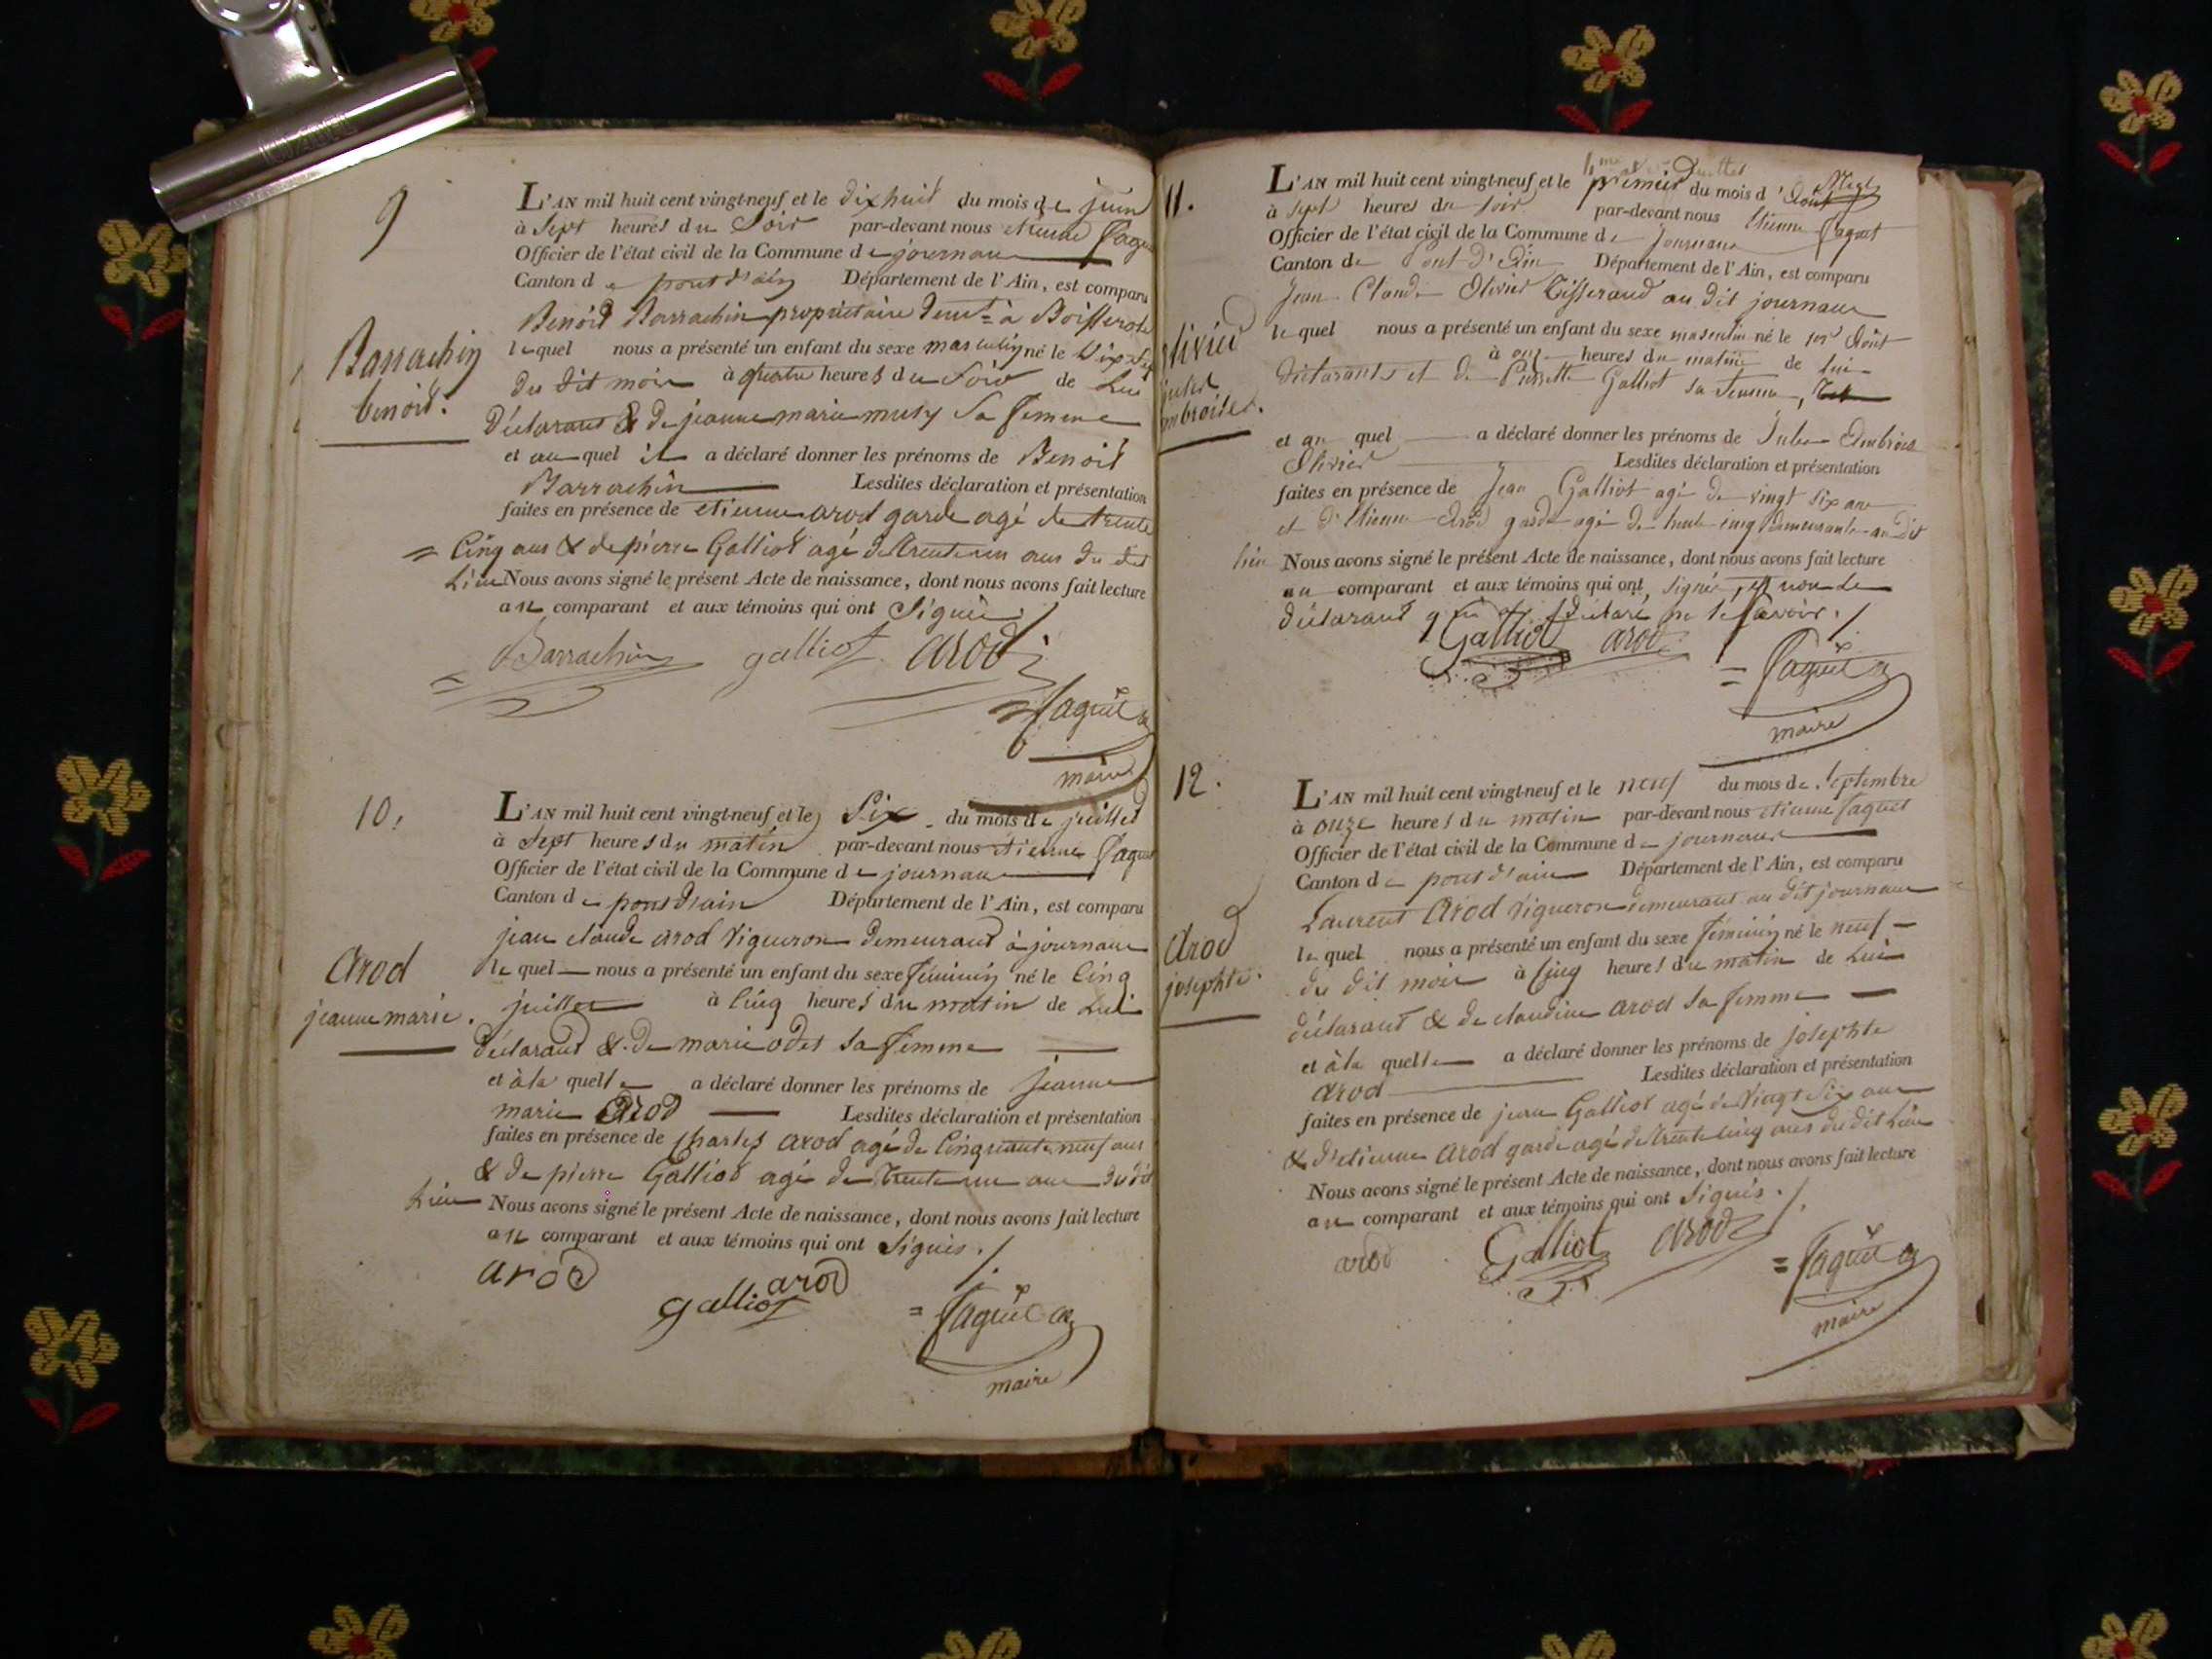 9
L'AN mil huit cent vingt-neuf et le dix huit du mois de juin
à Sept heures du Soir par-devant nous etienne
Officier de l'état civil de la Commune de journans
Canton de pont d'ain Département de l'Ain, est comparu
Benoit Barrachin propriétaire demt à
lequel nous a présenté un enfant du sexe masculin né le
du dit mois à quatre heures du Soir de Lui
Déclarant & De jeanne marie musy Sa femme
et au quel il a déclaré donner les prénoms de Benoit
Barrachin Lesdites déclaration et présentation
faites en présence de etienne arod garde agé de trente
Cinq ans & de pierre Galliot agé de trente un ans du dit
Lieu Nous avons signé le présent Acte de naissance, dont nous avons fait lecture
au comparant et aux témoins qui ont Signé
Barrachin
benoit.
Barrachin galliot arod
maire
10.
L'AN mil huit cent vingt-neuf et le Six du mois de juillet
à Sept heures du matin par-devant nous etienne
Officier de l'état civil de la Commune de journans
Canton de pont d'ain Département de l'Ain, est comparu
jean claude arod Vigneron demeurant à journans
lequel nous a présenté un enfant du sexe féminin né le Cinq
juillet à Cinq heures du matin de Lui
Déclarant & De marie odet Sa femme
et à la quelle a déclaré donner les prénoms de jeanne
marie Arod Lesdites déclaration et présentation
faites en présence de Charles arod agé de Cinquante neuf ans
& De pierre Galliot agé de Trente un ans du dit
Lieu Nous avons signé le présent Acte de naissance, dont nous avons fait lecture
au comparant et aux témoins qui ont Signés.
Arod
jeanne marie.
arod
arod
galliot
maire
11.
L'AN mil huit cent vingt-neuf et le premier du mois d'Aout
à sept heures du soir par-devant nous Etienne
Officier de l'état civil de la Commune de Journans
Canton de Pont d'Ain Département de l'Ain, est comparu
Jean Claude Olivier Tisserand au dit journans
lequel nous a présenté un enfant du sexe masculin né le 1er Aôut
à onze heures du matin de lui
déclarant et de Pierrette Galliot sa femme,
et au quel a déclaré donner les prénoms de Jules Ambroise
Olivier Lesdites déclaration et présentation
faites en présence de Jean Galliot agé de vingt six ans
et d'Etienne Arod garde agé de trente cinq demeurants au dit
lieu Nous avons signé le présent Acte de naissance, dont nous avons fait lecture
au comparant et aux témoins qui ont signé, et non le
déclarant qui a déclaré ne le savoir.
Galliot arod
maire
12.
L'AN mil huit cent vingt-neuf et le neuf du mois de Septembre
à onze heures du matin par-devant nous etienne
Officier de l'état civil de la Commune de journans
Canton de pont d'ain Département de l'Ain, est comparu
Laurent Arod Vigneron demeurant au dit journans
lequel nous a présenté un enfant du sexe féminin né le neuf
du dit mois à Cinq heures du matin de Lui
déclarant & de claudine arod Sa femme
et à la quelle a déclaré donner les prénoms de josephte
Arod Lesdites déclaration et présentation
faites en présence de jean Galliot agé de Vingt Six ans
& d'etienne Arod garde agé de trente cinq ans du dit Lieu
Nous avons signé le présent Acte de naissance, dont nous avons fait lecture
au comparant et aux témoins qui ont Signés.
Arod
josephte.
arod Galliot arod
maire